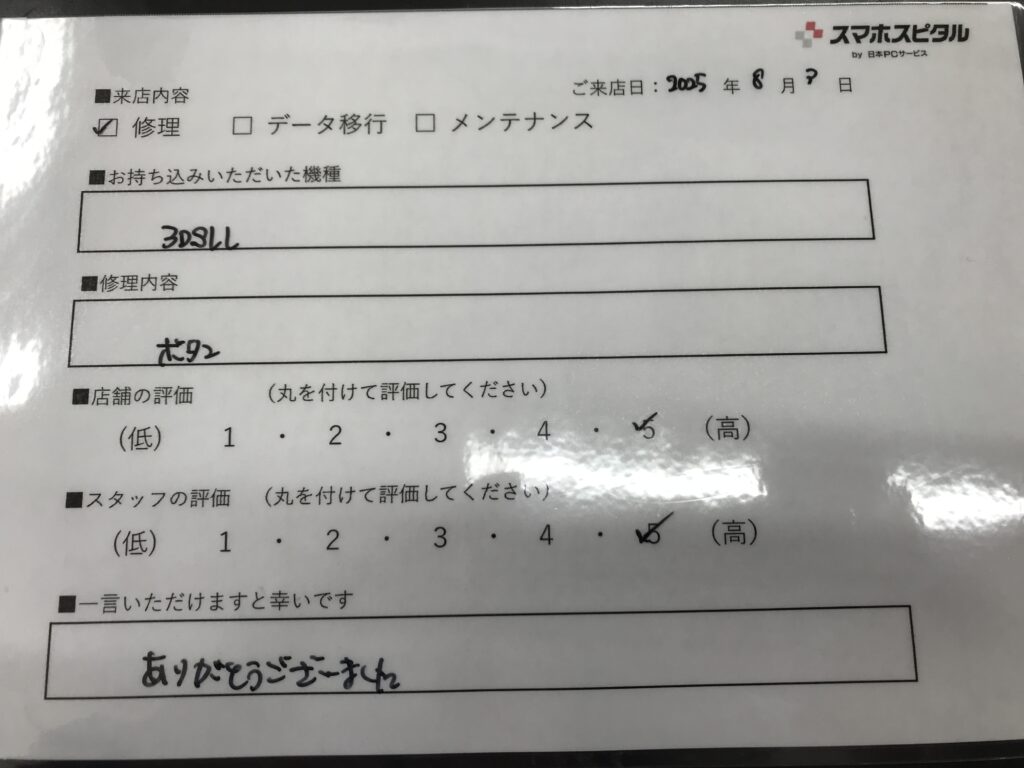 スマホスピタル
by 日本PCサービス
ご来店日：2025 年 8 月 7 日
■来店内容
☑ 修理 □ データ移行 □ メンテナンス
■お持ち込みいただいた機種
3DSLL
■修理内容
ボタン
■店舗の評価 （丸を付けて評価してください）
（低） 1 ・ 2 ・ 3 ・ 4 ・ 5 （高）
■スタッフの評価 （丸を付けて評価してください）
（低） 1 ・ 2 ・ 3 ・ 4 ・ 5 （高）
■一言いただけますと幸いです
ありがとうございました